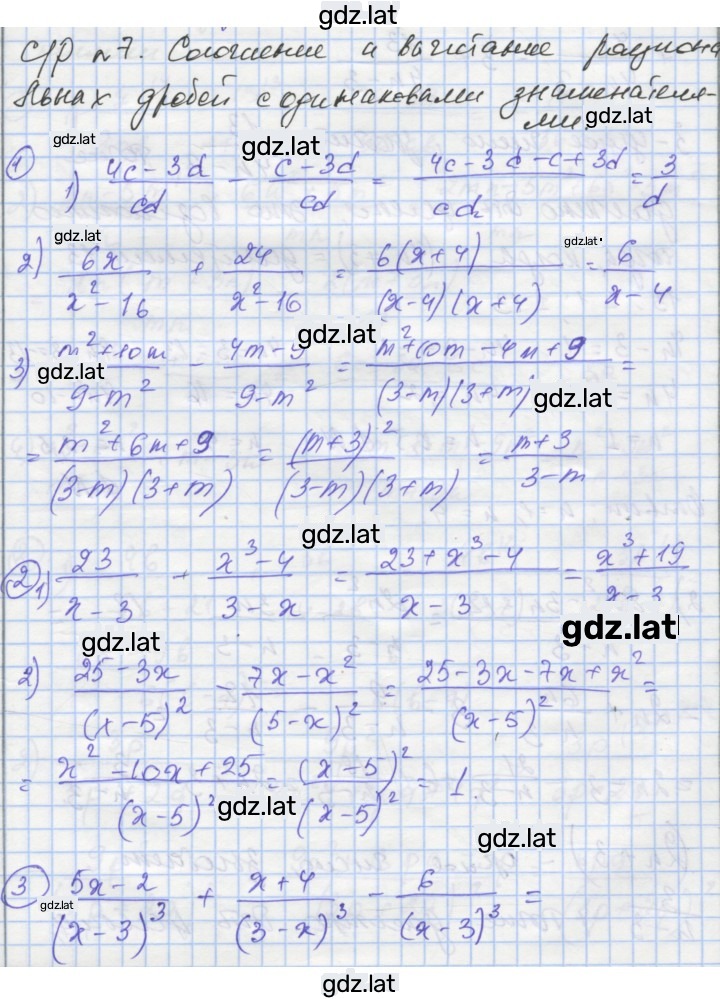 gdz.lat
С/Р №7. Сложение и вычитание рациона
льных дробей с одинаковыми знаменателя-
ми.
gdz.lat
gdz.lat
① 1) (4c-3d)/(cd) - (c-3d)/(cd) = (4c-3d-c+3d)/(cd) = 3/d
gdz.lat
gdz.lat
2) 6x/(x²-16) + 24/(x²-16) = 6(x+4)/((x-4)(x+4)) = 6/(x-4)
gdz.lat
3) (m²+10m)/(9-m²) - (4m-9)/(9-m²) = (m²+10m-4m+9)/((3-m)(3+m)) =
gdz.lat
gdz.lat
= (m²+6m+9)/((3-m)(3+m)) = (m+3)²/((3-m)(3+m)) = (m+3)/(3-m)
gdz.lat
② 1) 23/(x-3) + (x³-4)/(3-x) = (23+x³-4)/(x-3) = (x³+19)/(x-3)
gdz.lat
gdz.lat
2) (25-3x)/(x-5)² - (7x-x²)/(5-x)² = (25-3x-7x+x²)/(x-5)² =
= (x²-10x+25)/(x-5)² = (x-5)²/(x-5)² = 1.
gdz.lat
gdz.lat
③ (5x-2)/(x-3)³ + (x+4)/(3-x)³ - 6/(x-3)³ =
gdz.lat
gdz.lat